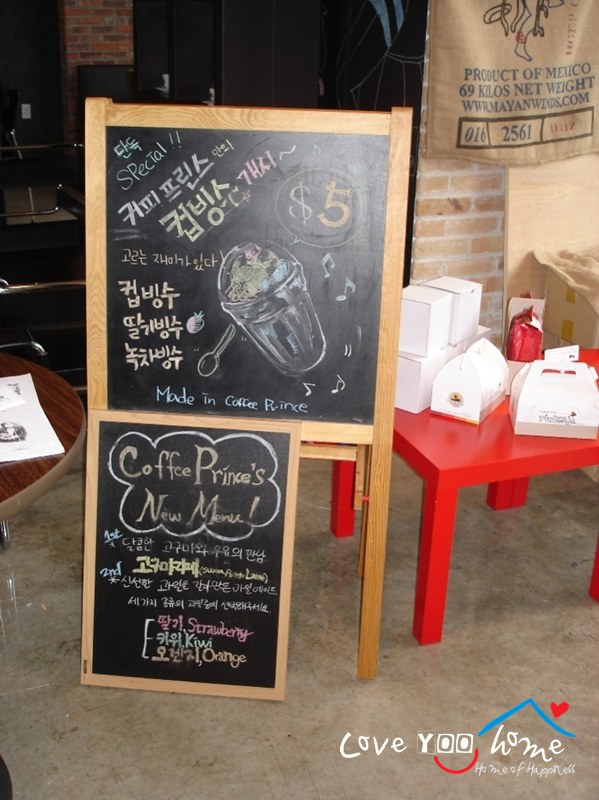 PRODUCT OF MEXICO
69 KILOS NET WEIGHT
WWW.MAYANWINDS.COM
016 2561
단독
Special!!
커피프린스 만의
컵빙수 개시~
$5
고르는 재미가 있다
컵빙수
딸기빙수
녹차빙수
Made in Coffee Prince
Coffee Prince's
New Menu!
1st 달콤한 고구마와 우유의 만남
고구마라떼 (Sweet Potato Latte)
2nd 신선한 과일로 갈아만든 과일에이드
세가지 종류의 과일중에 선택해주세요
딸기, Strawberry
키위, Kiwi
오렌지, Orange
Love YOO home
Home of Happiness